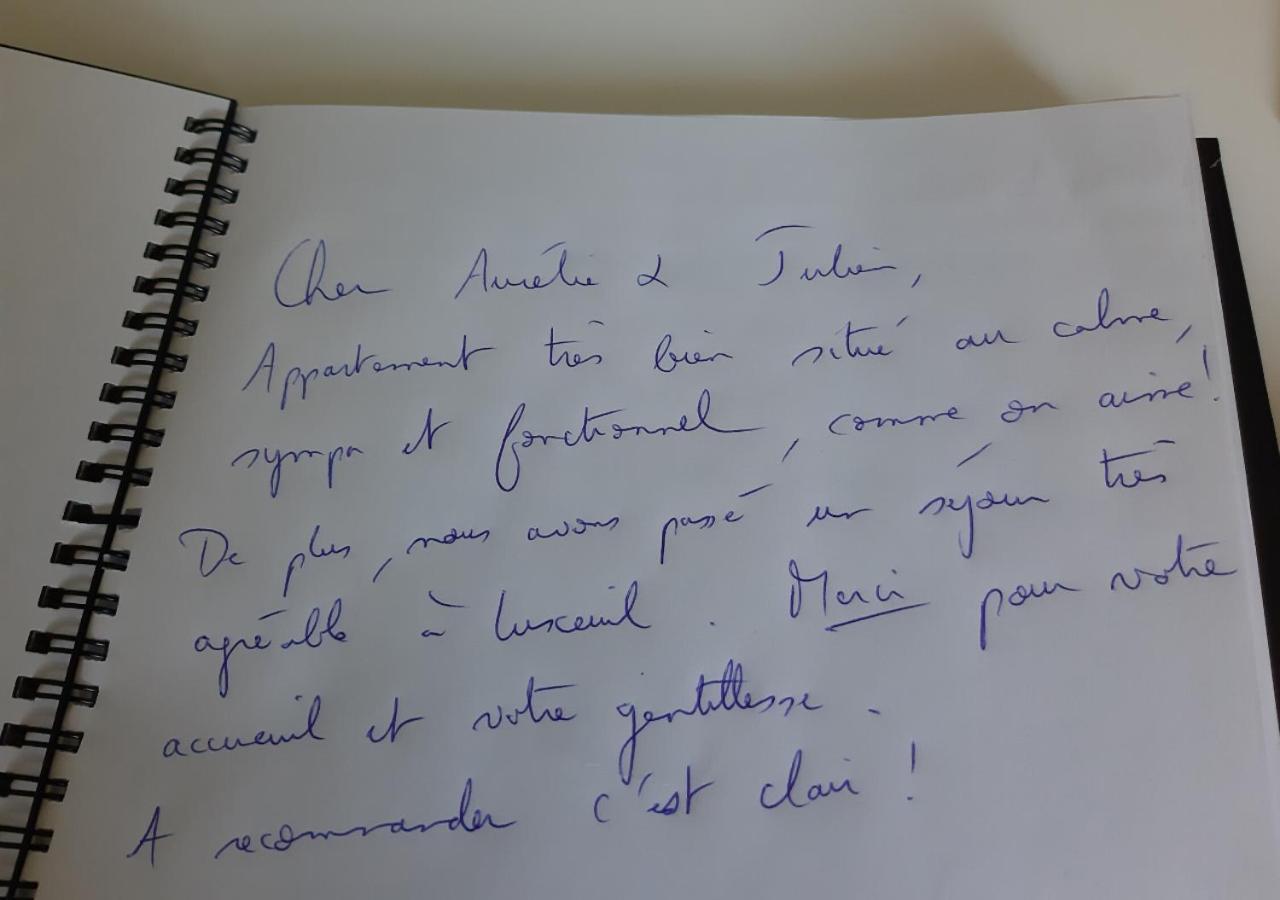 Cher Aurélie & Julien,
Appartement très bien situé au calme,
sympa et fonctionnel, comme on aime!
De plus, nous avons passé un séjour très
agréable à Luxeuil. Merci pour votre
accueuil et votre gentillesse.
A recommander c'est clair !